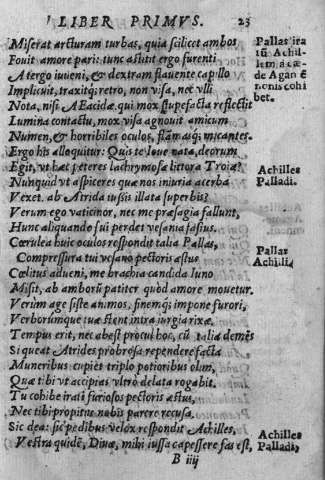 LIBER PRIMVS. 23
Miserat arcturam turbas, quia scilicet ambos
Fouit amore pari: tunc astitit ergo furenti
A tergo iuueni, & dextram flauente capillo
Implicuit, traxitq; retro, non visa, nec vlli
Nota, nisi Æacidæ, qui mox stupefacta reflectit
Lumina contactu, mox visa agnouit amicum
Numen, & horribiles oculos, flāmasq; micantes.
Ergo his alloquitur: Quis te Ioue nata, deorum
Egit, vt hæc peteres lachrymosa littora Troiæ?
Nunquid vt aspiceres quæ nos iniuria acerba
Vexet. ab Atrida iussis illata superbis?
Verum ego vaticinor, nec me præsagia fallunt,
Hunc aliquando sui perdet vesania fastus.
Cœrulea huic oculos respondit talia Pallas,
Compressura tui vesano pectoris æstus
Cœlitus adueni, me brachia candida Iuno
Misit, ab amborū patiter quòd amore mouetur.
Verùm age siste animos, finemq; impone furori,
Verborúmque tuæ stent intra iurgia rixæ.
Tempus erit, nec abest procul hoc, cū talia demēs
Si queat Atrides probrosa rependere facta
Muneribus cupiet triplo potioribus olim,
Quæ tibi vt accipias vltrò delata rogabit.
Tu cohibe irati furiosos pectoris æstus,
Nec tibi propitus nobis parere recusa.
Sic dea: sic pedibus velox respondit Achilles,
Vestra quidē, Diuæ, mihi iussa capessere fas est,
B iiij
Pallas ira
tū Achil-
lem, à cæ-
de Agan ē
nonis cohi
bet.
Achilles
Palladi.
Pallas
Achilli,
Achilles
Palladi,